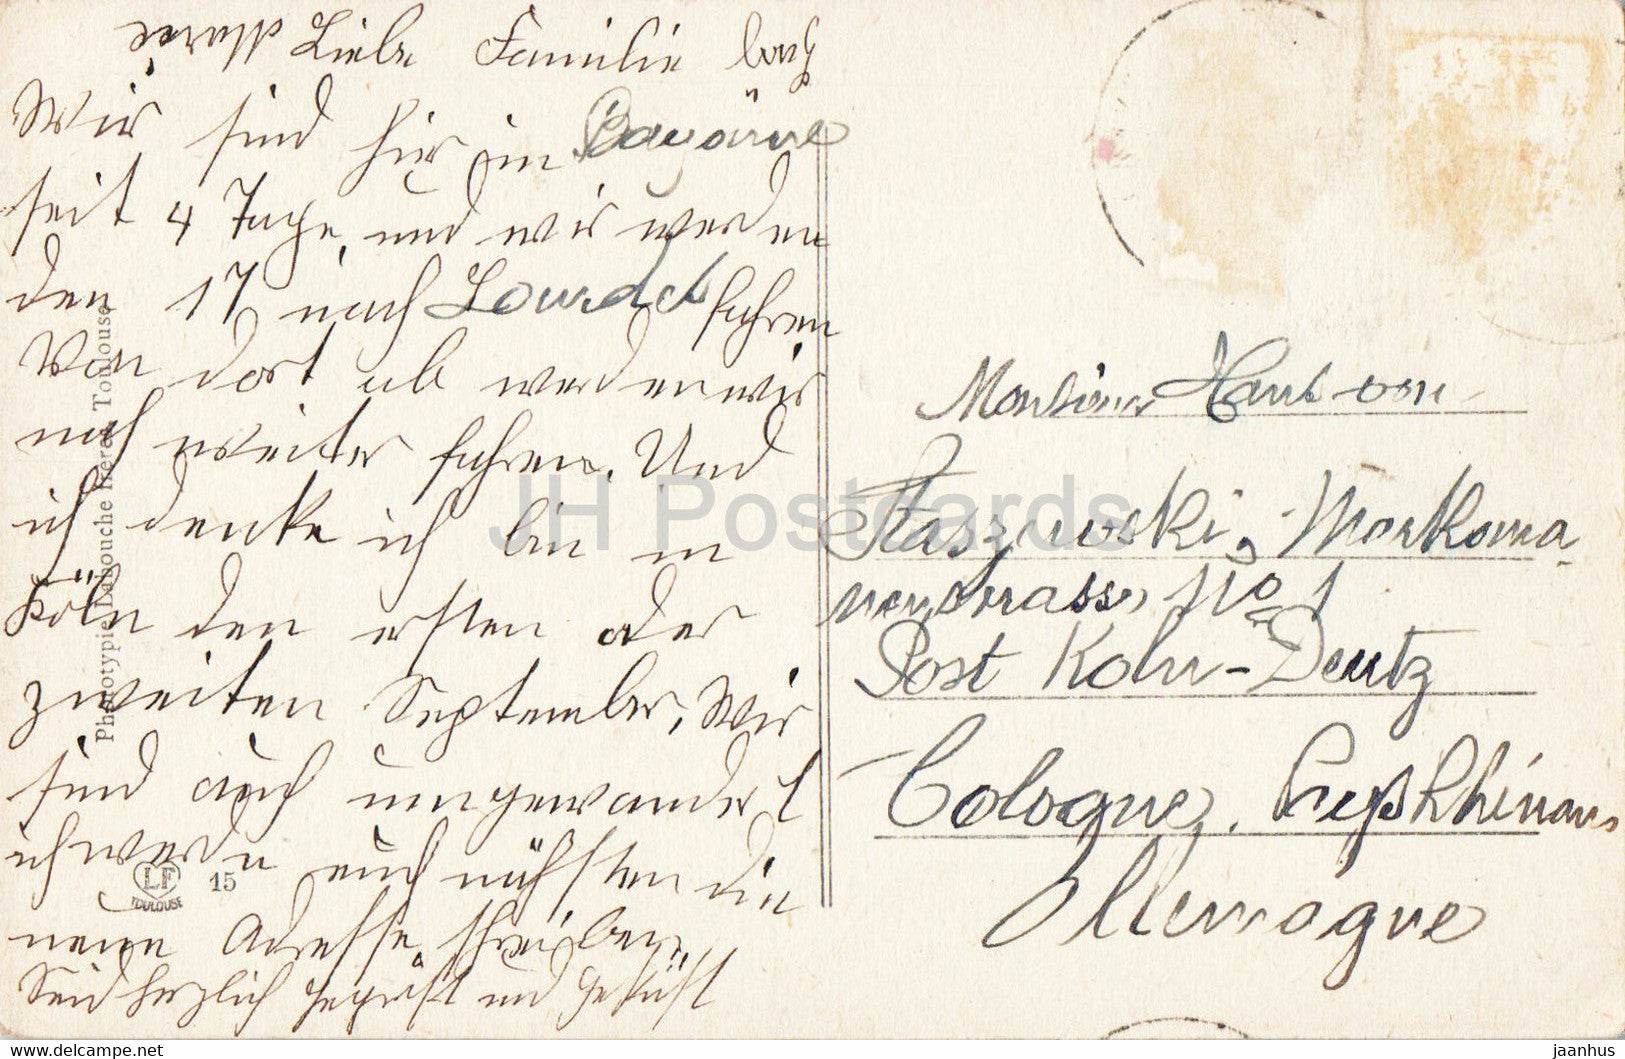 Liebe Familie
Wir sind hir in Bayonne
seit 4 Tage, und wir werden
den 17 nach Lourdes fahren
Von dort ab werden wir
noch weiter fahren. Und
ich denke ich bin in
Köln den ersten oder
zweiten September. Wir
sind auch umgewandert
ich werde euch nächsten die
neue Adresse schreiben.
Seid herzlich gegrüßt und Geküßt
Monsieur Hans von
Staszewski, Markoma-
nenstrasse No 1
Post Koln-Deutz
Cologne,
Allemagne
Phototypie Labouche frères Toulouse
LF
TOULOUSE
15
JH Postcards
www.delcampe.net
jaanhus